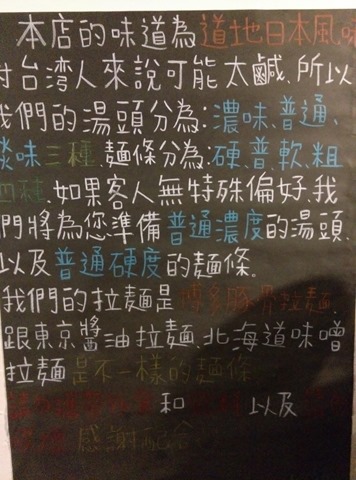 本店的味道為道地日本風味
對台湾人來說可能太鹹.所以
我們的湯頭分為:濃味、普通、
淡味三種.麵條分為:硬、普、軟、粗
四種.如果客人無特殊偏好.我
們將為您準備普通濃度的湯頭.
以及普通硬度的麵條。
我們的拉麵是博多豚骨拉麵.
跟東京醬油拉麵、北海道味噌
拉麵是不一樣的麵條
和 以及
感謝配合